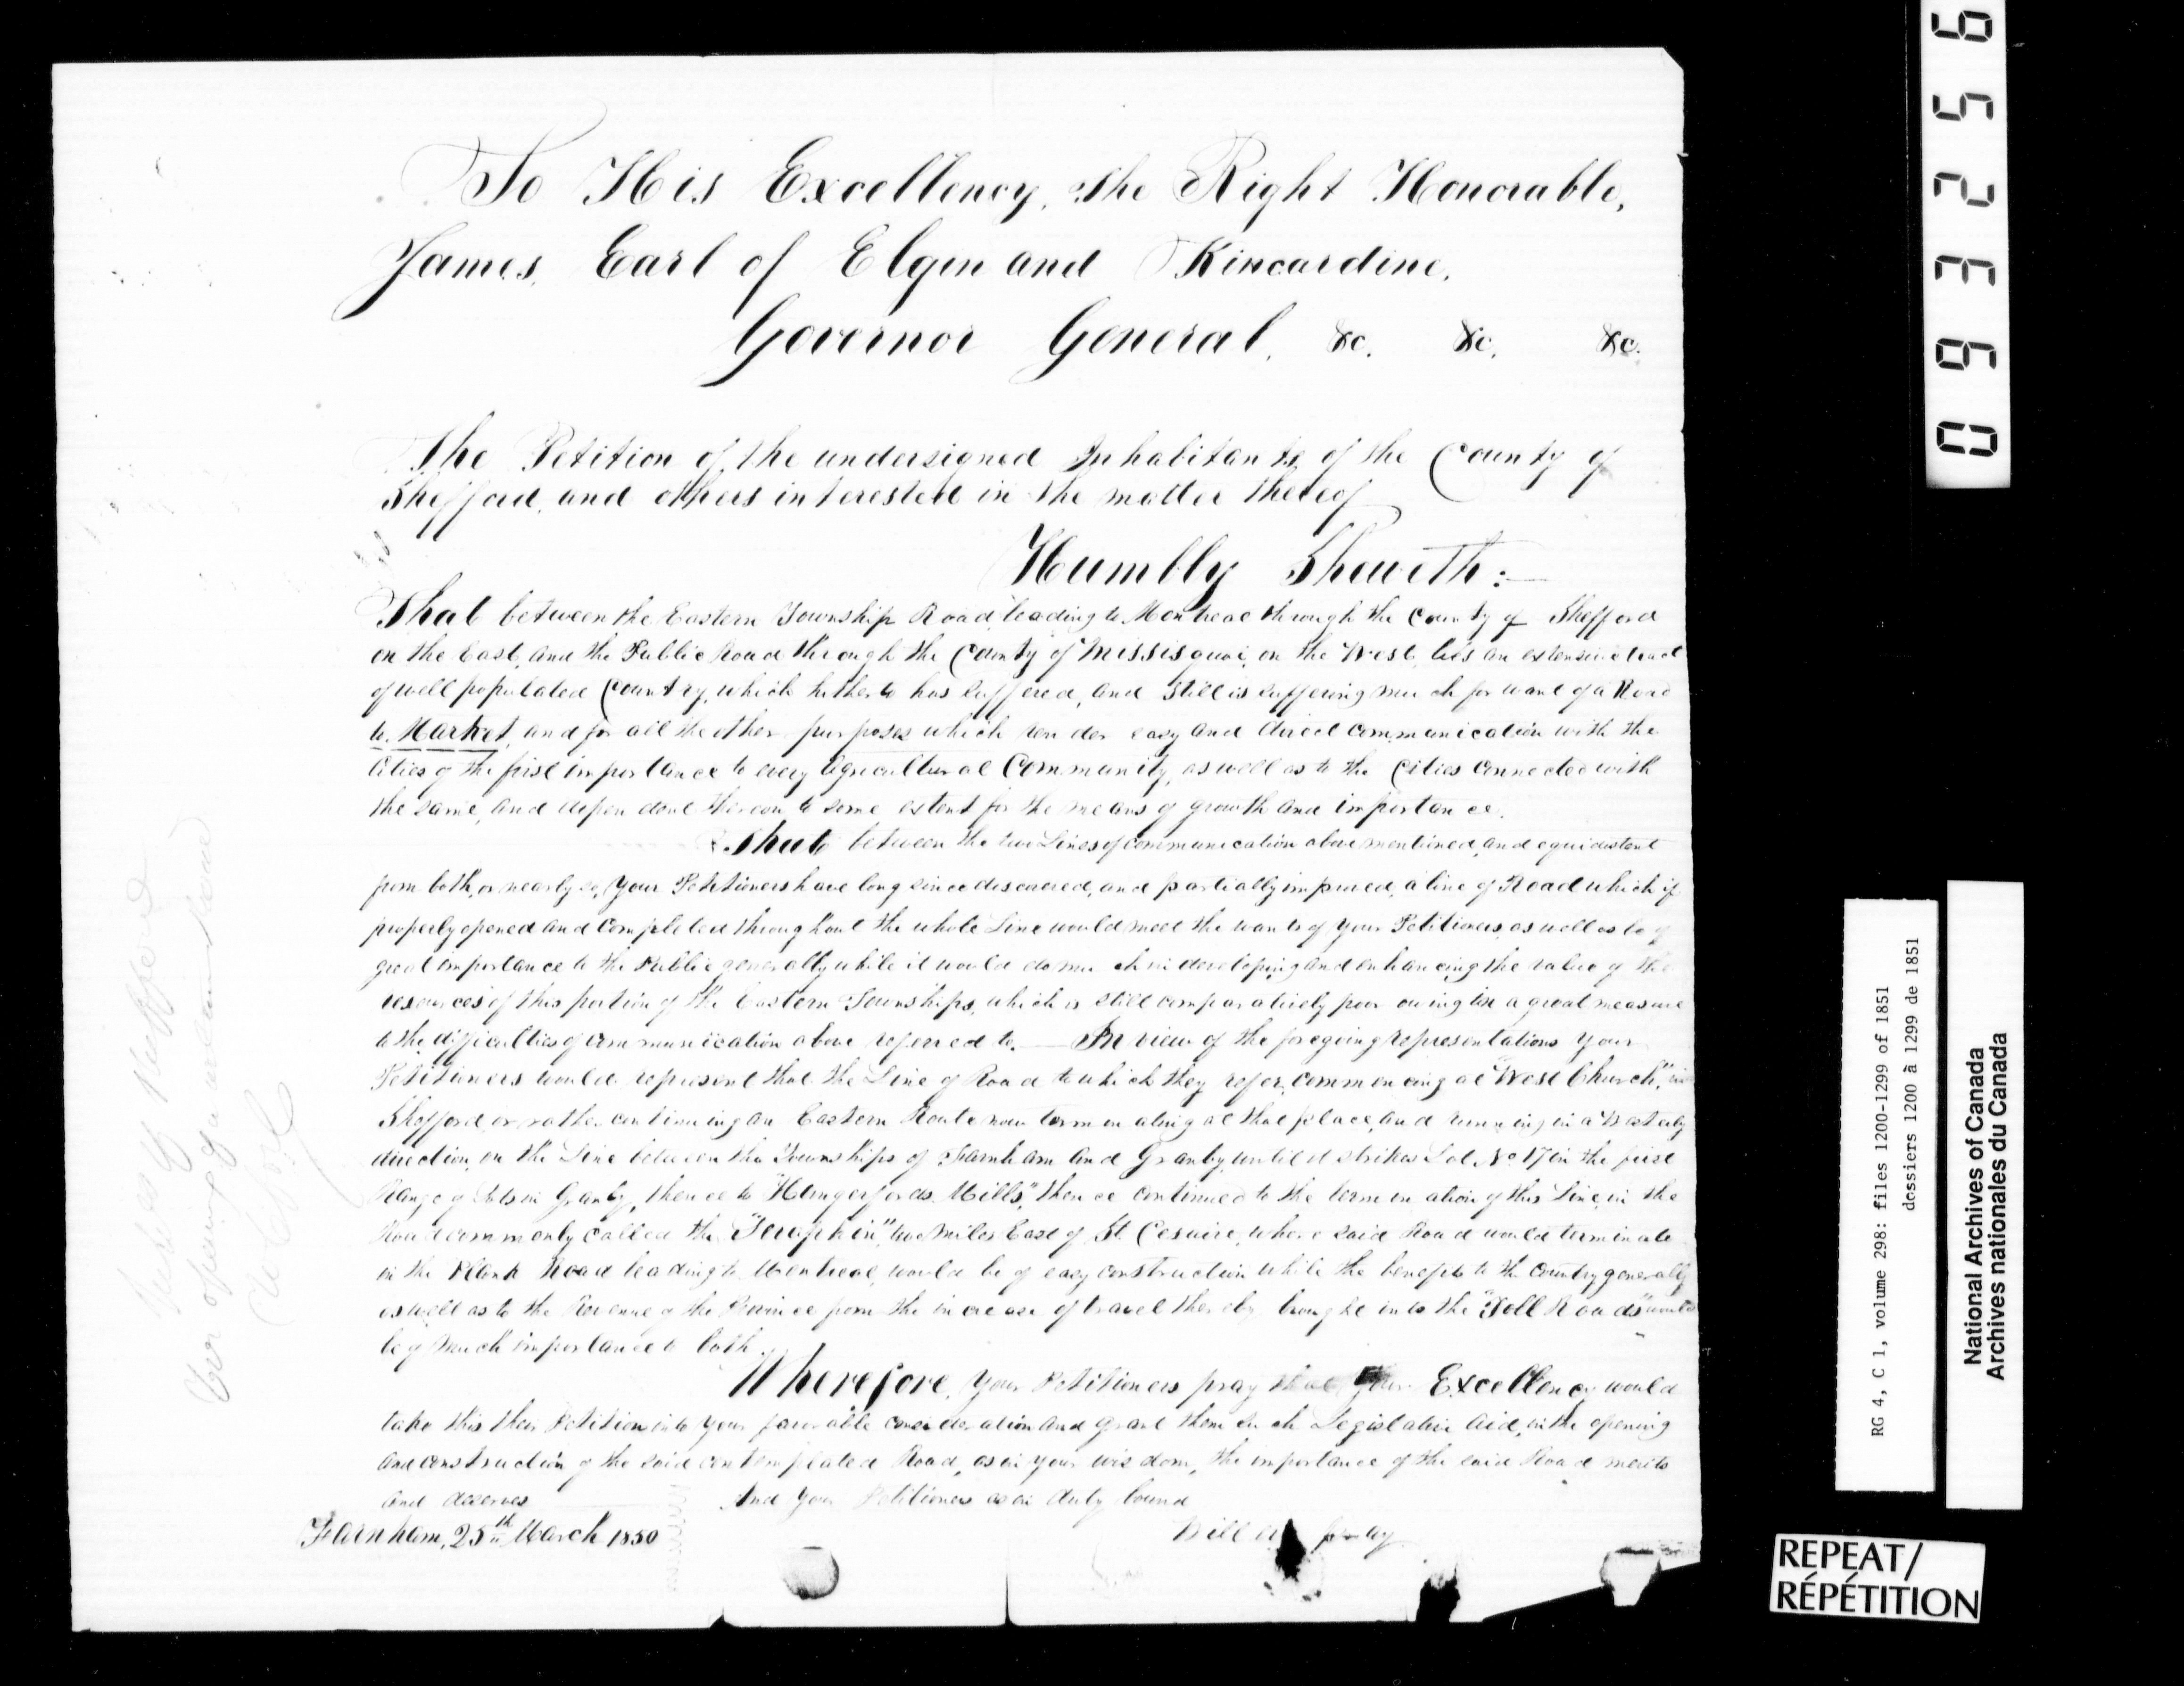 To His Excellency, the Right Honorable,
James, Earl of Elgin and Kincardine,
Governor General, &c. &c. &c.
The Petition of the undersigned Inhabitants of the County of
Shefford, and others interested in the matter thereof
Humbly Sheweth:—
That between the Eastern Township Road leading to Montreal through the County of Shefford
on the East, and the Public Road through the County of Missisquoi, on the West, lies an extensive tract
of well populated Country, which hitherto has suffered, and still is suffering much for want of a Road
to Market, and for all the other purposes which render easy and direct communication with the
Cities of the first importance to every Agricultural Community, as well as to the Cities connected with
the same, and dependent thereon to some extent for the means of growth and importance.
That between the two Lines of communication above mentioned, and equidistant
from both, or nearly so, Your Petitioners have long since discovered, and partially improved, a line of Road which if
properly opened and completed throughout the whole Line would meet the wants of your Petitioners, as well as be of
great importance to the Public generally while it would do much in developing and enhancing the value of the
resources of this portion of the Eastern Townships, which is still comparatively poor owing in a great measure
to the difficulties of communication above referred to. — In view of the foregoing representations Your
Petitioners would represent that the Line of Road to which they refer, commencing at "West Church," in
Shefford, or rather continuing an Eastern Route now terminating at that place, and running in a Westerly
direction, on the Line between the Townships of Farnham and Granby, until it strikes Lot No 17 in the first
Range of Lots in Granby, thence to "Hungerfords Mills," thence continued to the termination of this Line, in the
Road commonly called the two miles East of St. Cesaire, where said Road would terminate
in the Plank Road leading to Montreal, would be of easy construction while the benefits to the Country generally
as well as to the Revenue of the Province from the increase of travel thereby brought into the "Toll Roads" would
be of much importance to both.
Wherefore, Your Petitioners pray that Your Excellency would
take this their Petition into your favorable consideration and grant them such Legislative Aid, in the opening
and construction of the said contemplated Road, as in your wisdom, the importance of the said Road merits
and deserves And Your Petitioners as in duty bound
Will ever pray
Farnham, 25th March 1850
093256
RG 4, C 1, volume 298: files 1200-1299 of 1851
dossiers 1200 à 1299 de 1851
National Archives of Canada
Archives nationales du Canada
REPEAT/
RÉPÉTITION